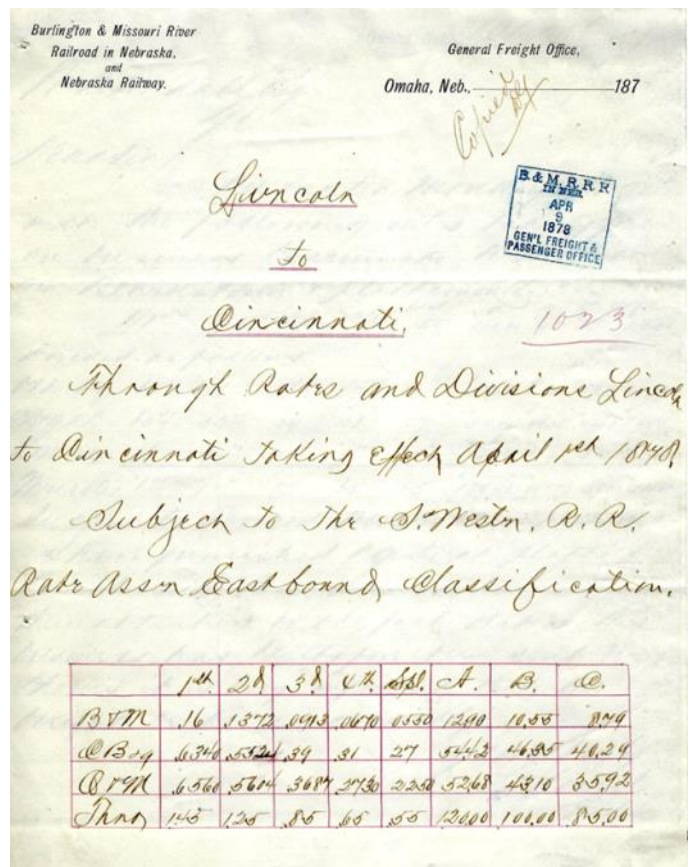 Burlington & Missouri River
Railroad in Nebraska.
and
Nebraska Railway.
General Freight Office,
Omaha, Neb., 187
Copied
B. & M. R. R. R
IN NEB.
APR
9
1878
GEN'L FREIGHT &
PASSENGER OFFICE
Lincoln
To
Cincinnati.
1023
Through Rates and Divisions Lincoln
to Cincinnati taking effect April 1st 1878,
Subject to the S. Westn. R. R.
Rate Assn Eastbound Classification.
1st. 2d 3d 4th. Spl. A. B. C.
B & M .16 .1372 .0913 .0670 .0550 12.90 10.55 8.79
C B & q .6340 .5524 .39 .31 27 54.42 46.35 40.29
O & M .6560 .5604 .3687 .2730 .2250 52.68 43.10 35.92
Thro 1.45 1.25 .85 .65 .55 120.00 100.00 85.00